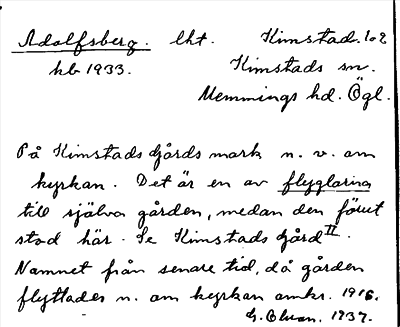 Adolfsberg. lht. Kimstad. 1o2
hb 1933. Kimstads sn.
Memmings hd. Ögl.
På Kimstads gårds mark n. v. om
kyrkan. Det är en av flyglarna
till själva gården, medan den förut
stod här. Se Kimstads Gård II.
Namnet från senare tid, då gården
flyttades n. om kyrkan omkr. 1916.
1937.